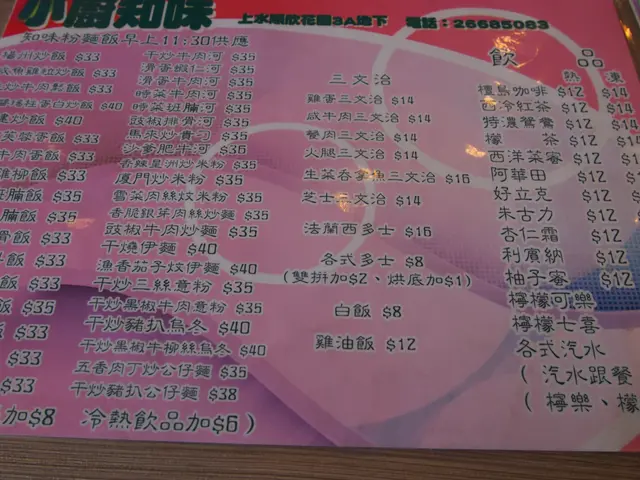 小廚知味 上水順欣花園3A地下 電話：26685083
知味粉麵飯早上11:30供應
福州炒飯 $33
咸魚雞粒炒飯 $33
炒牛肉鬆飯 $33
蛋白炒飯 $40
炒飯 $40
芙蓉蛋飯 $33
牛肉蛋飯 $33
蛋飯 $33
斑腩飯 $35
腩飯 $35
骨飯 $33
飯 $33
飯 $33
飯 $35
$33
$33
$33
加$8 冷熱飲品加$6）
干炒牛肉河 $35
滑蛋蝦仁河 $35
滑蛋牛肉河 $35
時菜牛肉河 $35
時菜斑腩河 $35
豉椒排骨河 $35
馬來炒貴刁 $35
沙爹肥牛河 $36
香辣星洲炒米粉 $35
廈門炒米粉 $35
雪菜肉絲炆米粉 $35
香脆銀芽肉絲炒麵 $35
豉椒牛肉炒麵 $35
干燒伊麵 $40
漁香茄子炆伊麵 $40
干炒三絲意粉 $35
干炒黑椒牛肉意粉 $35
干炒豬扒烏冬 $40
干炒黑椒牛柳絲烏冬 $40
五香肉丁炒公仔麵 $35
干炒豬扒公仔麵 $38
三文治
雞蛋三文治 $14
咸牛肉三文治 $14
餐肉三文治 $14
火腿三文治 $14
生菜吞拿魚三文治 $16
芝士三文治 $14
法蘭西多士 $16
各式多士 $8
(雙拼加$2、烘底加$1)
白飯 $8
雞油飯 $12
飲 品
熱 凍
檀島咖啡 $12 $14
西冷紅茶 $12 $14
特濃鴛鴦 $12 $14
檸 茶 $12 $14
西洋菜蜜 $12 $14
阿華田 $12 $14
好立克 $12 $14
朱古力 $12 $14
杏仁霜 $12
利賓納 $12
柚子蜜 $12
檸檬可樂
檸檬七喜
各式汽水
( 汽水跟餐
( 檸樂、檬